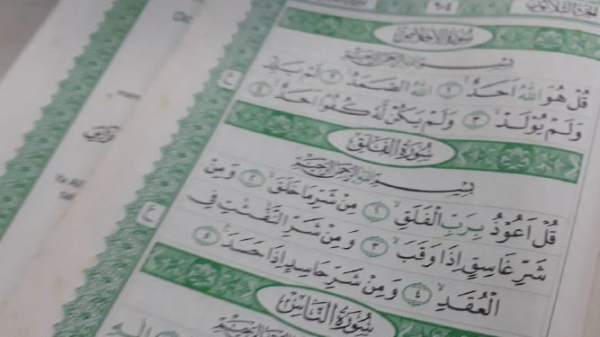 ٦٠٤
سُورَةُ الْاِخْلَاصِ
بِسْمِ اللهِ الرَّحْمٰنِ الرَّحِيْمِ
قُلْ هُوَ اللهُ اَحَدٌ ۚ ١ اَللهُ الصَّمَدُ ۚ ٢ لَمْ يَلِدْ
وَلَمْ يُوْلَدْ ۙ ٣ وَلَمْ يَكُنْ لَّهٗ كُفُوًا اَحَدٌ ٤
سُورَةُ الْفَلَقِ
بِسْمِ اللهِ الرَّحْمٰنِ الرَّحِيْمِ
قُلْ اَعُوْذُ بِرَبِّ الْفَلَقِ ۙ ١ مِنْ شَرِّ مَا خَلَقَ ۙ ٢ وَمِنْ
شَرِّ غَاسِقٍ اِذَا وَقَبَ ۙ ٣ وَمِنْ شَرِّ النَّفّٰثٰتِ فِى
الْعُقَدِ ۙ ٤ وَمِنْ شَرِّ حَاسِدٍ اِذَا حَسَدَ ٥
سُورَةُ النَّاسِ